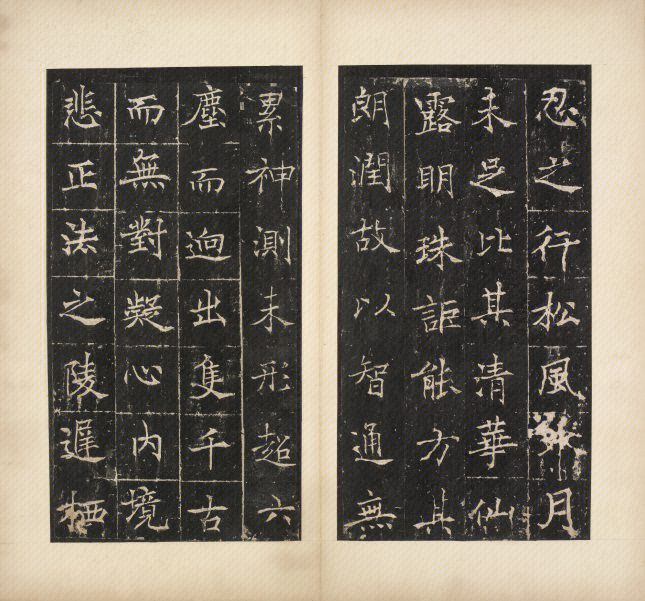 忍之行松風水月
未足比其清華仙
露明珠詎能方其
朗潤故以智通無
累神測未形超六
塵而迥出隻千古
而無對凝心內境
悲正法之陵遲栖